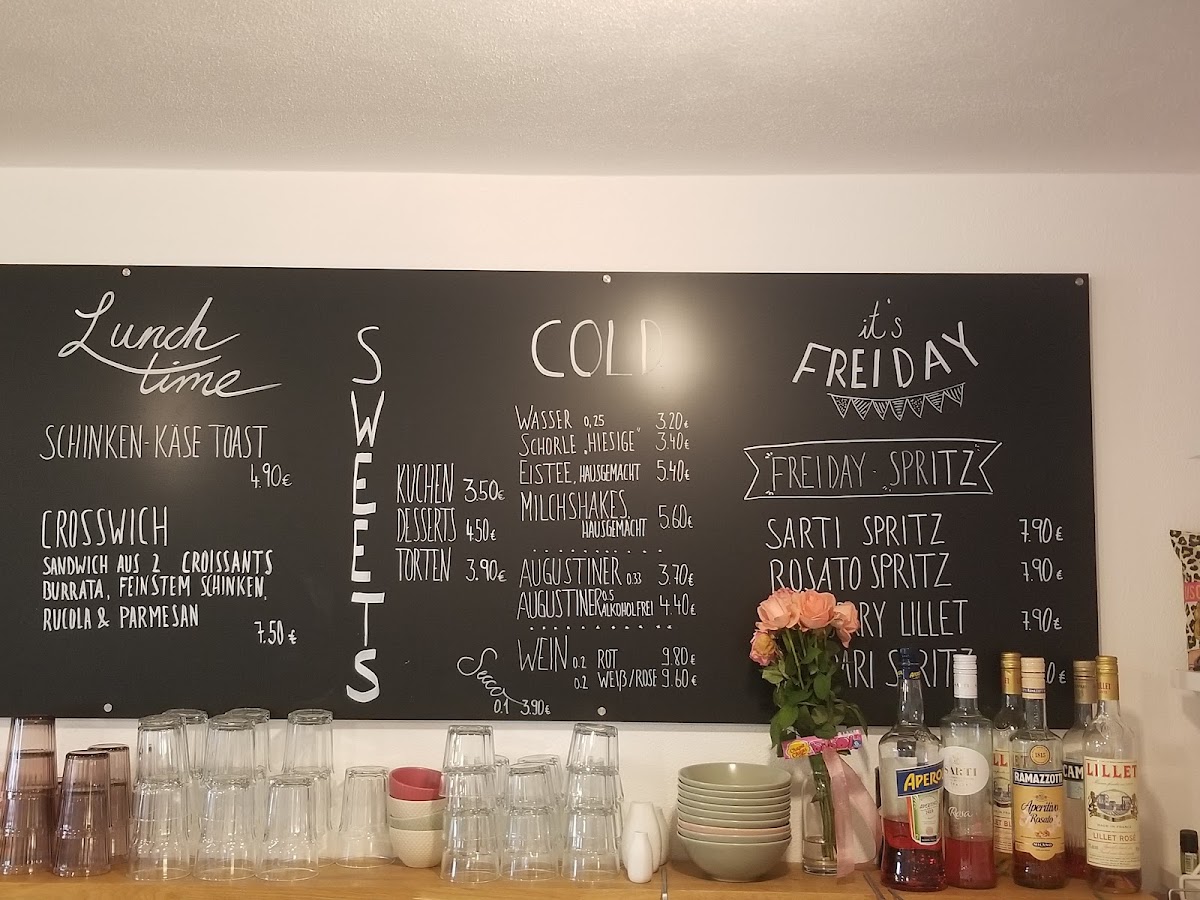 Lunch
time
SCHINKEN-KÄSE TOAST
4.90€
CROSSWICH
SANDWICH AUS 2 CROISSANTS
BURRATA, FEINSTEM SCHINKEN,
RUCOLA & PARMESAN
7.50€
SWEETS
KUCHEN 3.50€
DESSERTS 4.50€
TORTEN 3.90€
COLD
WASSER 0,25 3.20€
SCHORLE „HIESIGE" 3.40€
EISTEE, HAUSGEMACHT 5.40€
MILCHSHAKES,
HAUSGEMACHT 5.60€
AUGUSTINER 0.33 3.70€
AUGUSTINER 0.5 ALKOHOLFREI 4.40€
WEIN 0.2 ROT 9.80€
0.2 WEIß/ROSE 9.60€
Secco
0.1 3.90€
it's
FREIDAY
"FREIDAY-SPRITZ"
SARTI SPRITZ 7.90€
ROSATO SPRITZ 7.90€
LILLET 7.90€
SPRITZ
APEROL
SARTI
Rosa
RAMAZZOTTI
Aperitivo
Rosato
MILANO
LILLET
LILLET ROSÉ